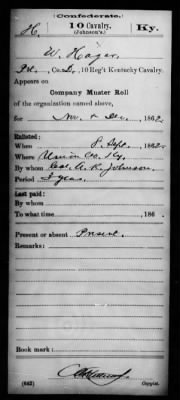 (Confederate.)
H. 10 Cavalry. Ky.
(Johnson's.)
W. Hager
Pvt., Co. , 10 Reg't Kentucky Cavalry.
Appears on
Company Muster Roll
of the organization named above,
for Nov. & Dec., 1862.
Enlisted:
When 8 Sept., 1862.
Where Union Co. Ky.
By whom Col. A. R. Johnson.
Period 3 years.
Last paid:
By whom
To what time , 186 .
Present or absent Present.
Remarks:
Book mark:
(642)
Copyist.